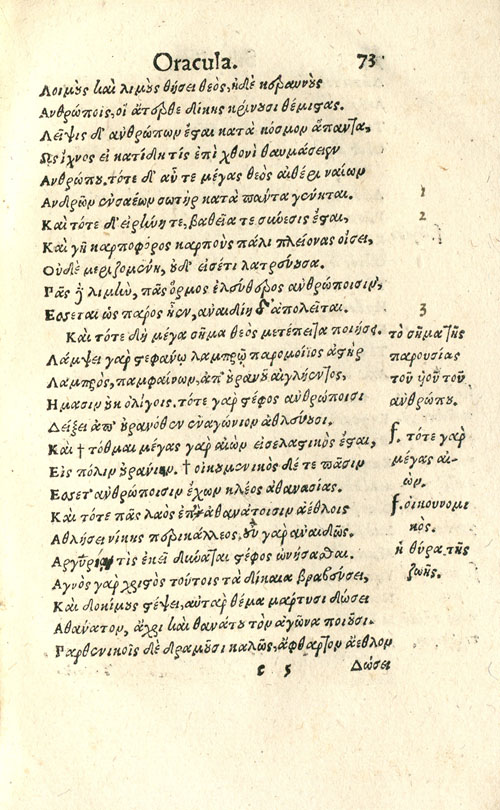 Oracula. 73
Λοιμοὺς καὶ λιμοὺς θήσει θεὸς, ἠδὲ κεραυνοὺς
Ανθρώποις, οἳ ἄτερθε δίκης κρίνουσι θέμιστας.
Λεῖψις δ' ἀνθρώπων ἔσται κατὰ κόσμον ἅπαντα,
Ως ἴχνος εἰ κατίδῃ τίς ἐπὶ χθονὶ θαυμάσειεν
Ανθρώπου. τότε δ' αὖ τε μέγας θεὸς αἰθέρι ναίων
Ανδρῶν εὐσεβέων σωτὴρ κατὰ πάντα γένηται. 1
Καὶ τότε δ' εἰρήνη τε, βαθεῖα τε σύνεσις ἔσται, 2
Καὶ γῆ καρποφόρος καρποὺς πάλι πλείονας οἴσει,
Οὐδὲ μεριζομένη, οὐδ' εἰσέτι λατρεύουσα.
Πᾶς λιμὴν, πᾶς ὅρμος ἐλεύθερος ἀνθρώποισιν,
Εσεται ὡς πάρος ἦεν, ἀναιδείη ἀπολεῖται. 3
Καὶ τότε δὴ μέγα σῆμα θεὸς μετέπειτα ποιήσει. τὸ σῆμα τῆς
Λάμψει γὰρ στεφάνῳ λαμπρῷ παρομοίϊος ἀστὴρ παρουσίας
Λαμπρὸς, παμφαίνων, ἀπ' οὐρανοῦ αἰγλήεντος, τοῦ υἱοῦ τοῦ
Ημασιν οὐκ ὀλίγοις. τότε γὰρ στέφος ἀνθρώποισι ἀνθρώπου.
Δείξει ἀπ' οὐρανόθεν ἐναγώνιον ἀθλεύουσι.
Καὶ † τόθμαι μέγας γὰρ αἰὼν εἰσελαστικὸς ἔσται, f. τότε γὰρ
Εἰς πόλιν οὐράνιον. † οἰκουμενικὸς δέ τε πᾶσιν μέγας αἰ-
Εσετ' ἀνθρώποισιν ἔχων κλέος ἀθανασίας. ών.
Καὶ τότε πᾶς λαὸς ἐπ' ἀθανάτοισιν ἀέθλοις f. οἰκουνομι
Αθλήσει νίκης περικάλλεος, οὐ γὰρ ἀναιδῶς. κός.
Αργυρίου τὶς ἐκεῖ δύναται στέφος ὠνήσασθαι. ἡ θύρα τῆς
Αγνὸς γὰρ χριστὸς τούτοις τὰ δίκαια βραβεύσει, ζωῆς.
Καὶ δοκίμους στέψει, αὐτὰρ θέμα μάρτυσι δώσει
Αθάνατον, ἄχρι καὶ θανάτου τὸν ἀγῶνα ποιοῦσι.
Παρθενικοῖς δὲ δραμοῦσι καλῶς, ἄφθαρτον ἄεθλον
e 5 Δώσει